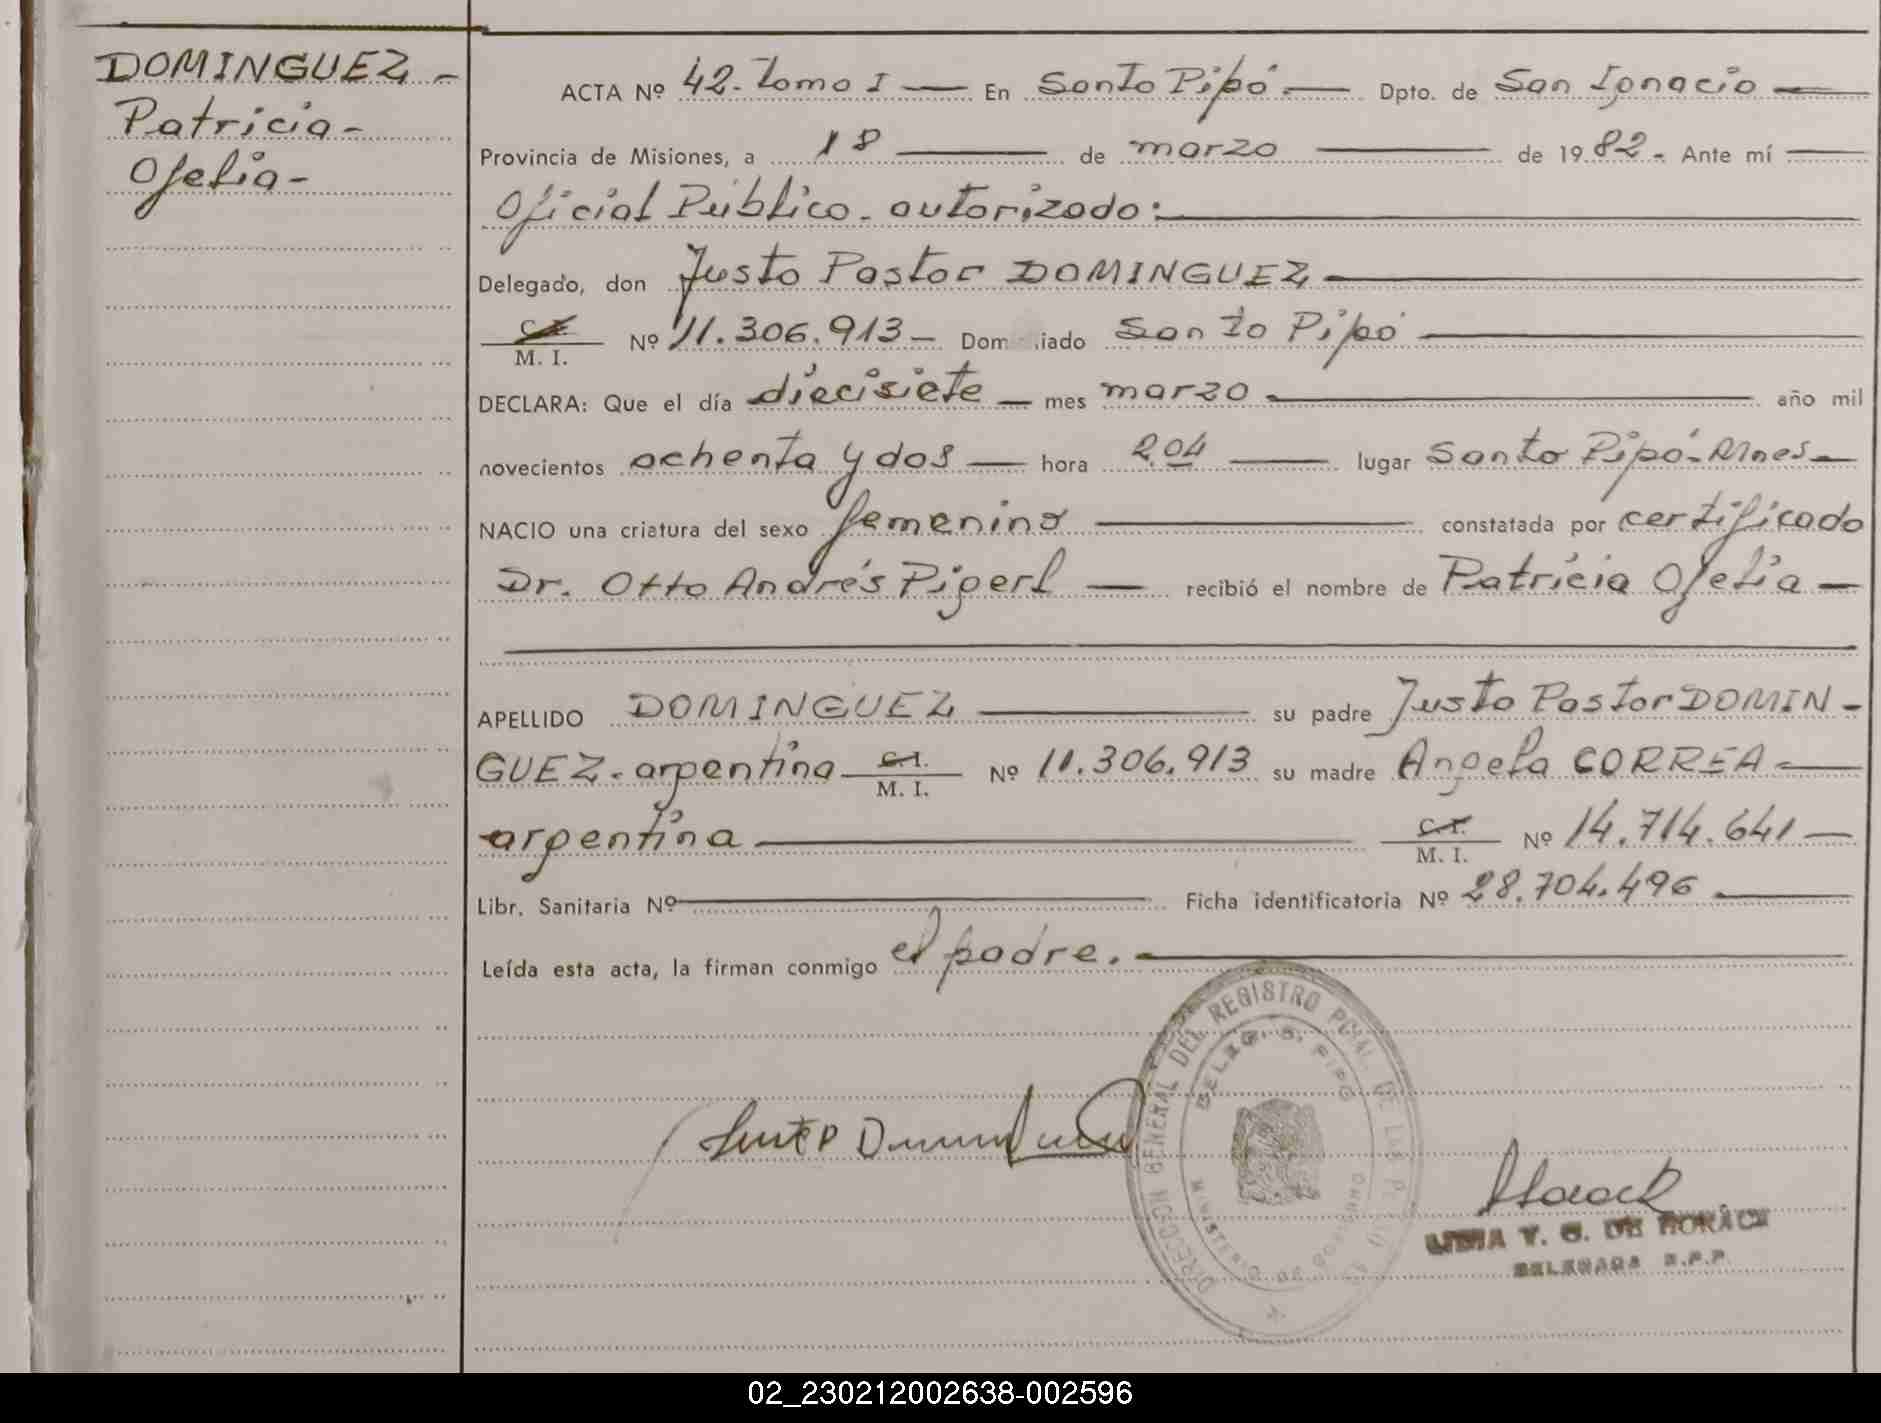 DOMINGUEZ -
Patricia -
Ofelia -
ACTA Nº 42. Tomo I — En Santo Pipó — Dpto. de San Ignacio —
Provincia de Misiones, a 18 — de marzo — de 1982. Ante mí —
Oficial Público. autorizado: —
Delegado, don Justo Pastor DOMINGUEZ —
C. I.
M. I. Nº 11.306.913 — Dom iado Santo Pipó —
DECLARA: Que el día diecisiete — mes marzo — año mil
novecientos ochenta y dos — hora 2,04 — lugar Santo Pipó - Mnes —
NACIO una criatura del sexo femenino — constatada por certificado
Dr. Otto Andrés Pigerl — recibió el nombre de Patricia Ofelia —
APELLIDO DOMINGUEZ — su padre Justo Pastor DOMIN -
GUEZ. argentina C. I.
M. I. Nº 11.306.913 su madre Angela CORREA —
argentina — C. I.
M. I. Nº 14.714.641 —
Libr. Sanitaria Nº — Ficha identificatoria Nº 28.704.496 —
Leída esta acta, la firman conmigo el padre. —
DIRECCION GENERAL DEL REGISTRO PCIAL. DE LAS
DELEG. S. PIPO
MINISTERIO DE GOBIERNO
DE HORACK
DELEGADA R.P.P.
02_230212002638-002596